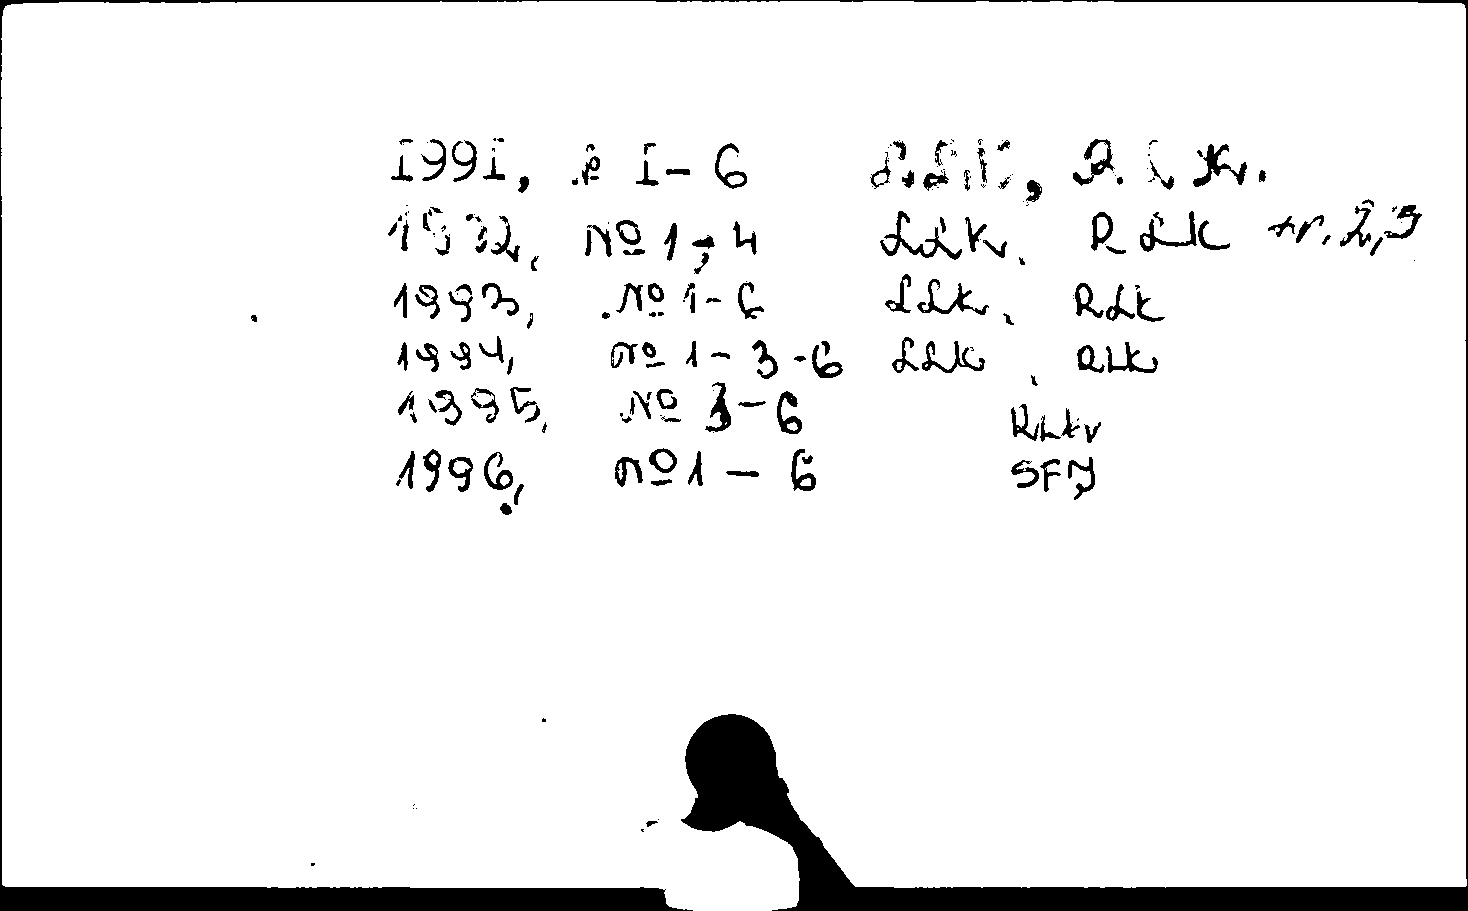 I99I, № I-6 L.L.K, R.L.Kr.
1992, № 1-4 LLKr. RLK nr. 2,3
1993, № 1-6 LLKr, RLK
1994, № 1-3-6 LLK, RLK
1995, № 3-6 RLKr
1996, № 1-6 SFJ